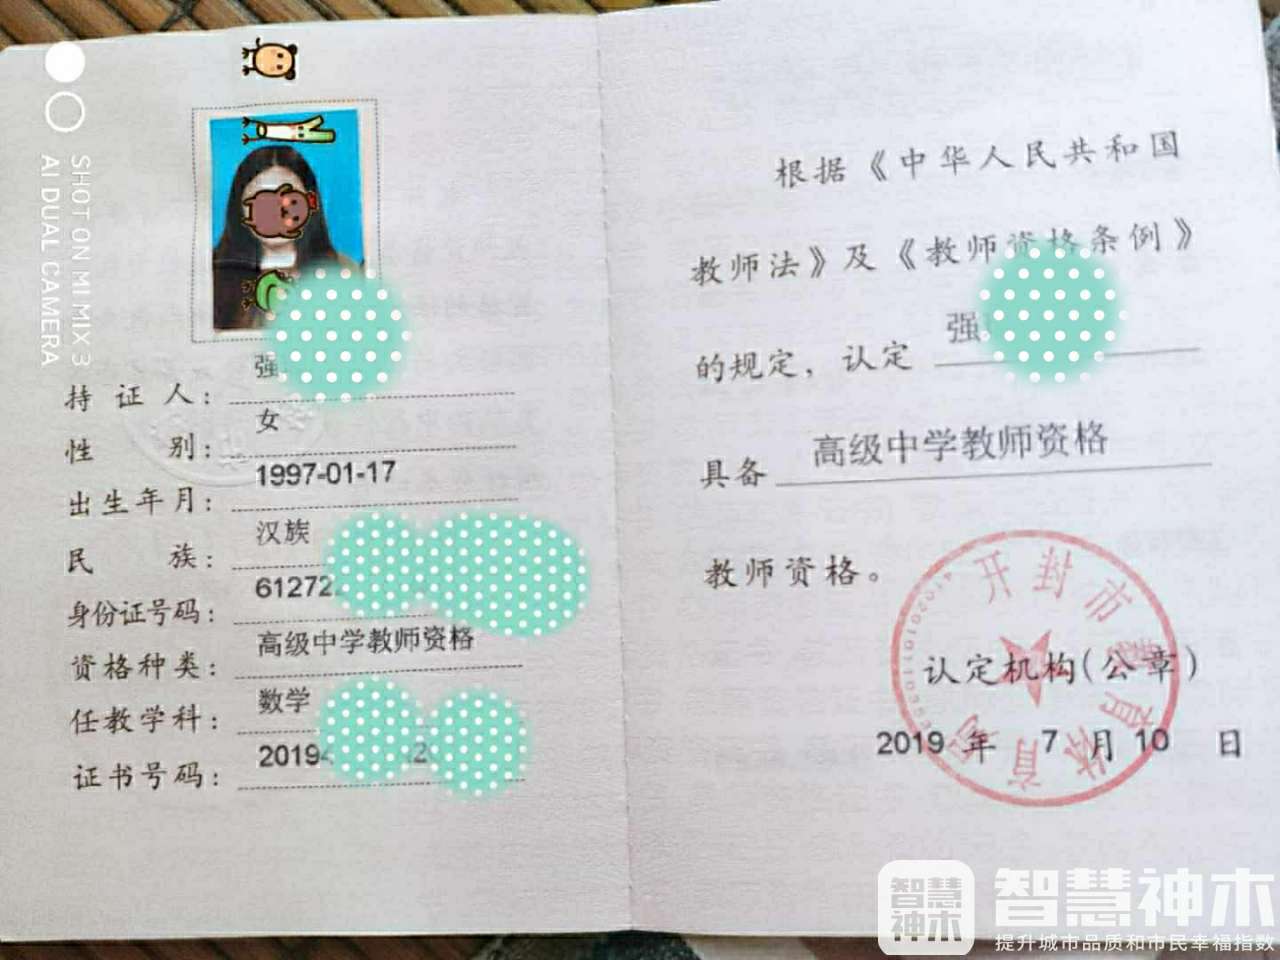 SHOT ON MI MIX 3
AI DUAL CAMERA
持证人：强
性别：女
出生年月：1997-01-17
民族：汉族
身份证号码：61272
资格种类：高级中学教师资格
任教学科：数学
证书号码：2019
根据《中华人民共和国
教师法》及《教师资格条例》
的规定，认定 强
具备 高级中学教师资格
教师资格。
认定机构(公章)
2019 年 7 月 10 日
开封市教育体育局
智慧神木
智慧神木
提升城市品质和市民幸福指数